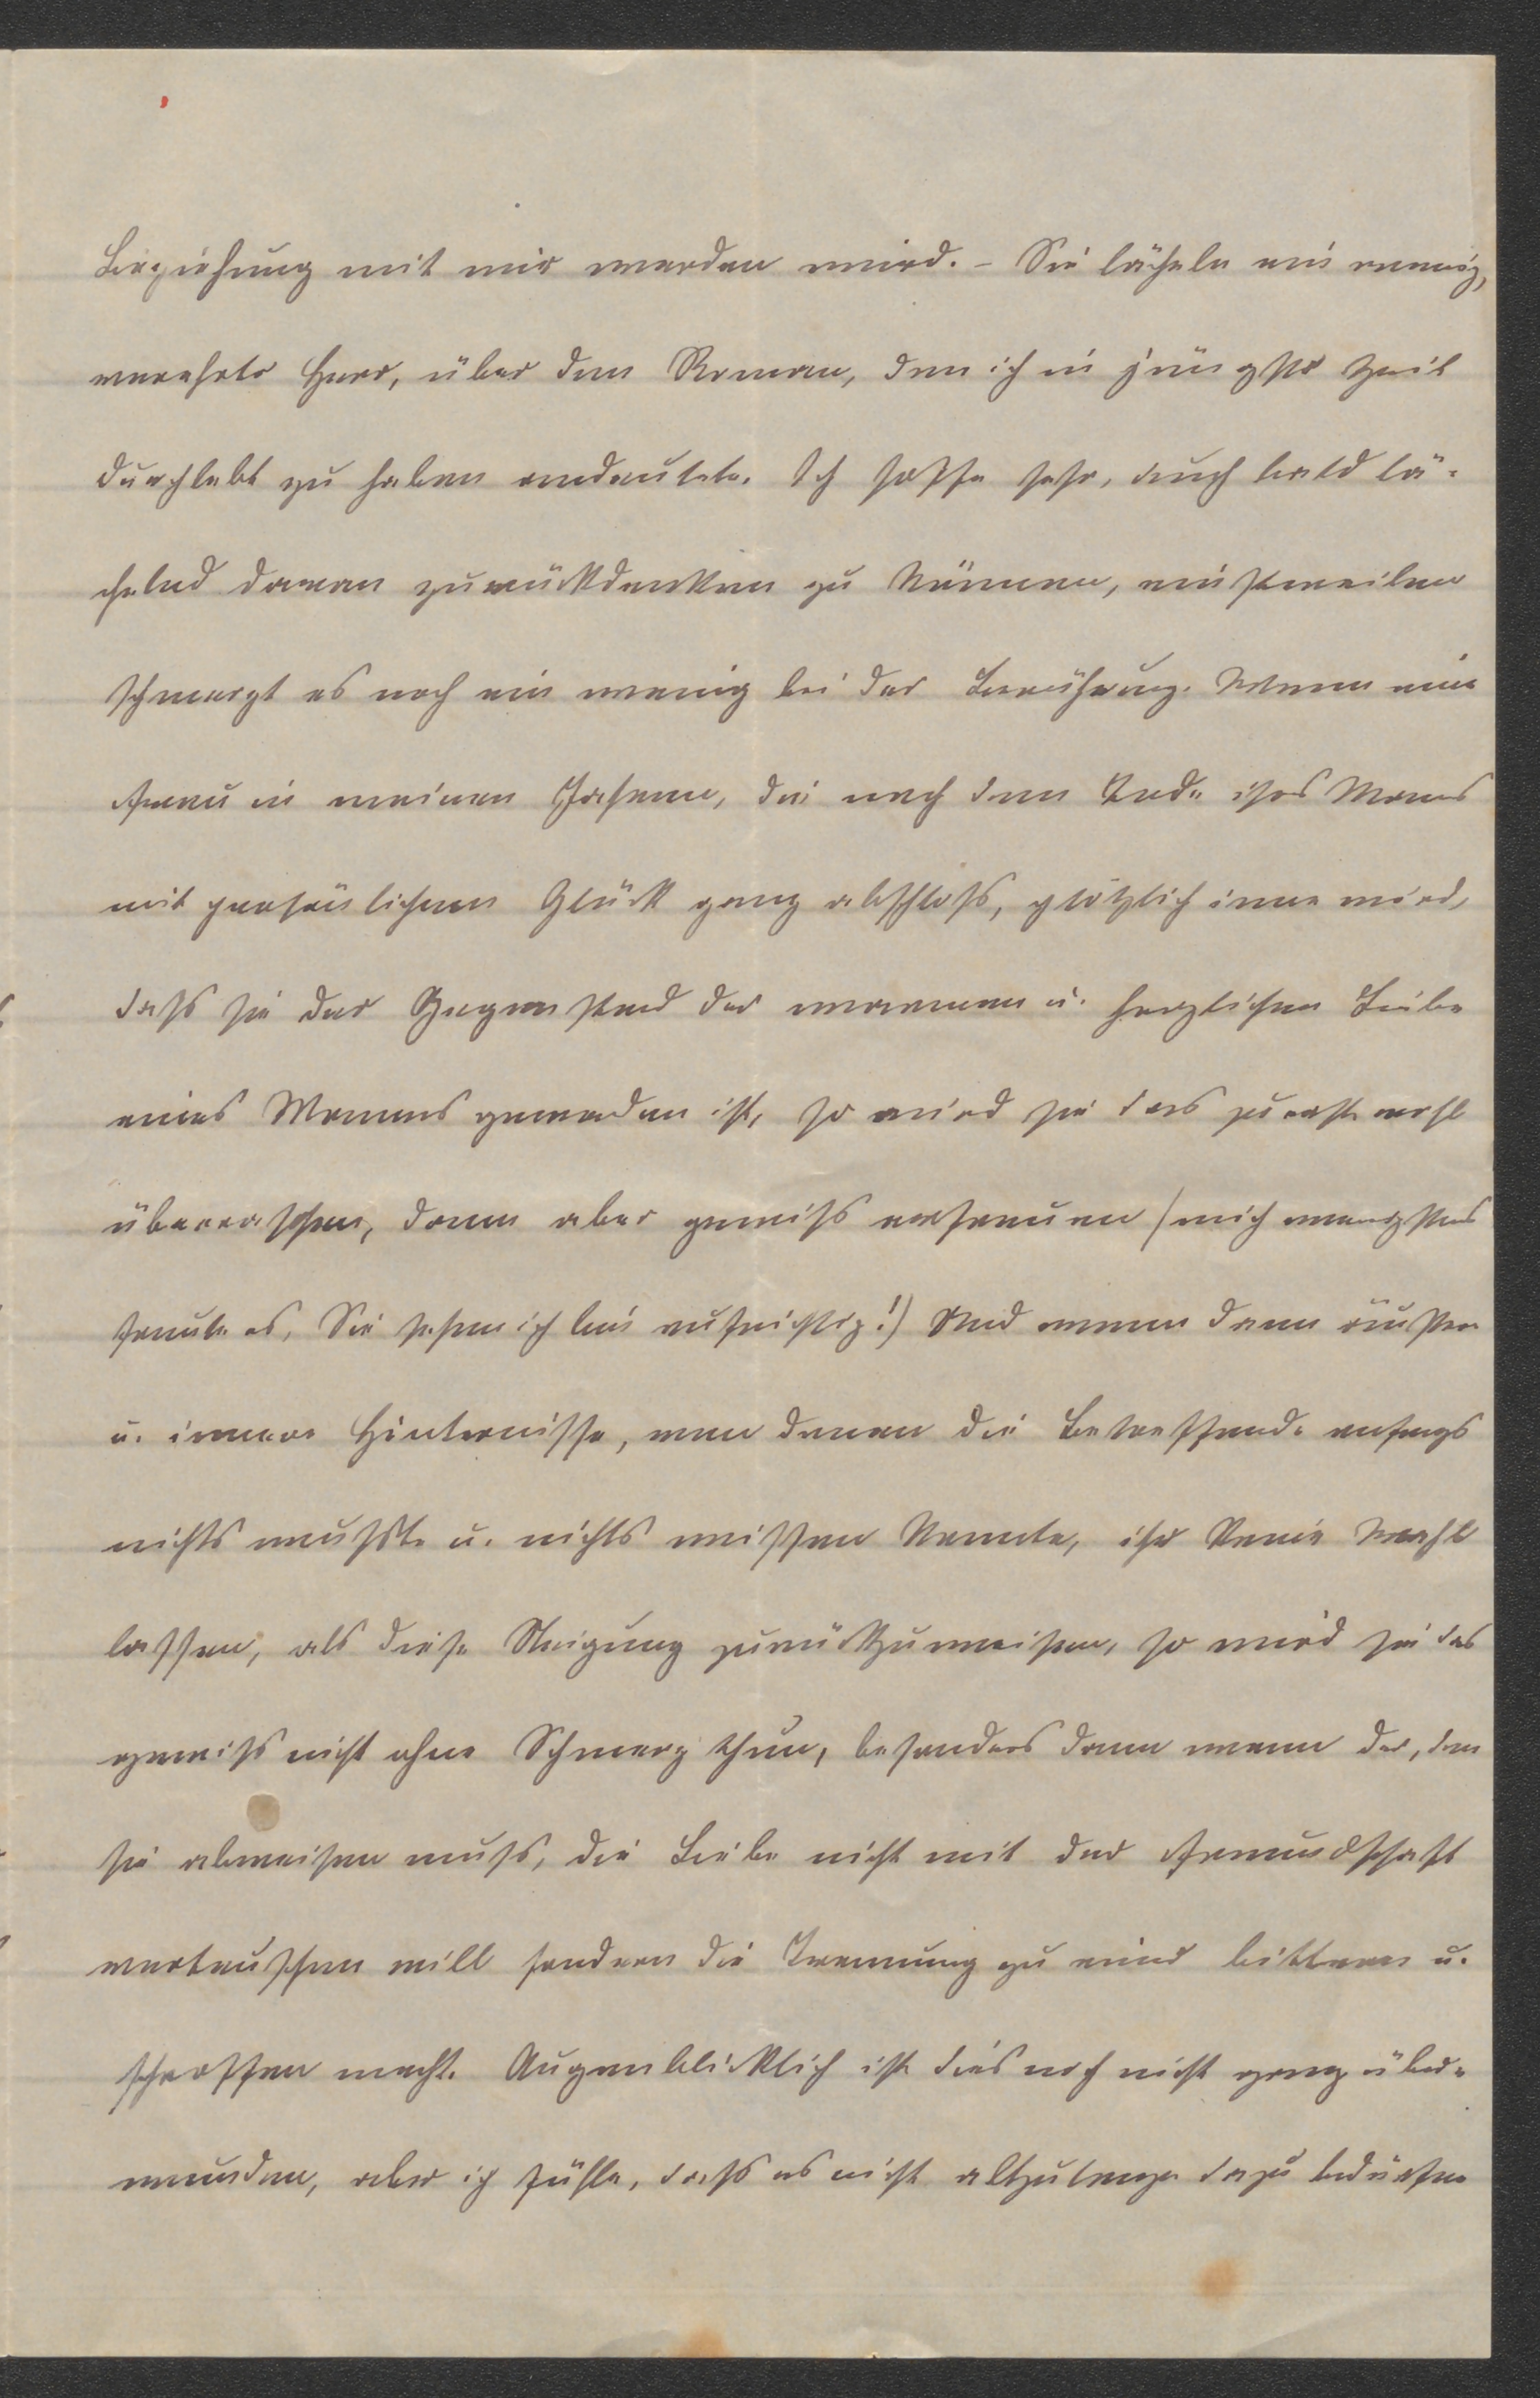 Beziehung mit mir werden wird. – Sie lächeln ein wenig,
verehrter Herr, über den Roman, den ich in jüngster Zeit
durchlebt zu haben andeutete. Ich hoffe sehr, auch bald lä-
chelnd daran zurückdenken zu können, einstweilen
schmerzt es noch ein wenig bei der Berührung. Wenn eine
Frau in meinen Jahren, die nach dem Tode ihres Manns
mit persönlichem Glück ganz abschloss, plötzlich inne wird,
dass sie der Gegenstand der warmen u. herzlichen Liebe
eines Mannes geworden ist, so wird sie das zuerst wohl
überraschen, dann aber gewiss erfreuen (mich wenigstens
freute es, Sie sehen ich bin aufrichtig!) Und wenn dann äussere
u. innere Hinternisse, von denen die Betreffende anfangs
nichts wusste u. nichts wissen konnte, ihr keine Wahl
lassen, als diese Neigung zurückzuweisen, so wird sie das
gewiss nicht ohne Schmerz thun, besonders dann wenn der, den
sie abweisen muss, die Liebe nicht mit der Freundschaft
vertauschen will sondern die Trennung zu einer bitteren u.
schroffen macht. Augenblicklich ist dies noch nicht ganz über-
wunden, aber ich fühle, dass es nicht allzulange dazu bedürfen